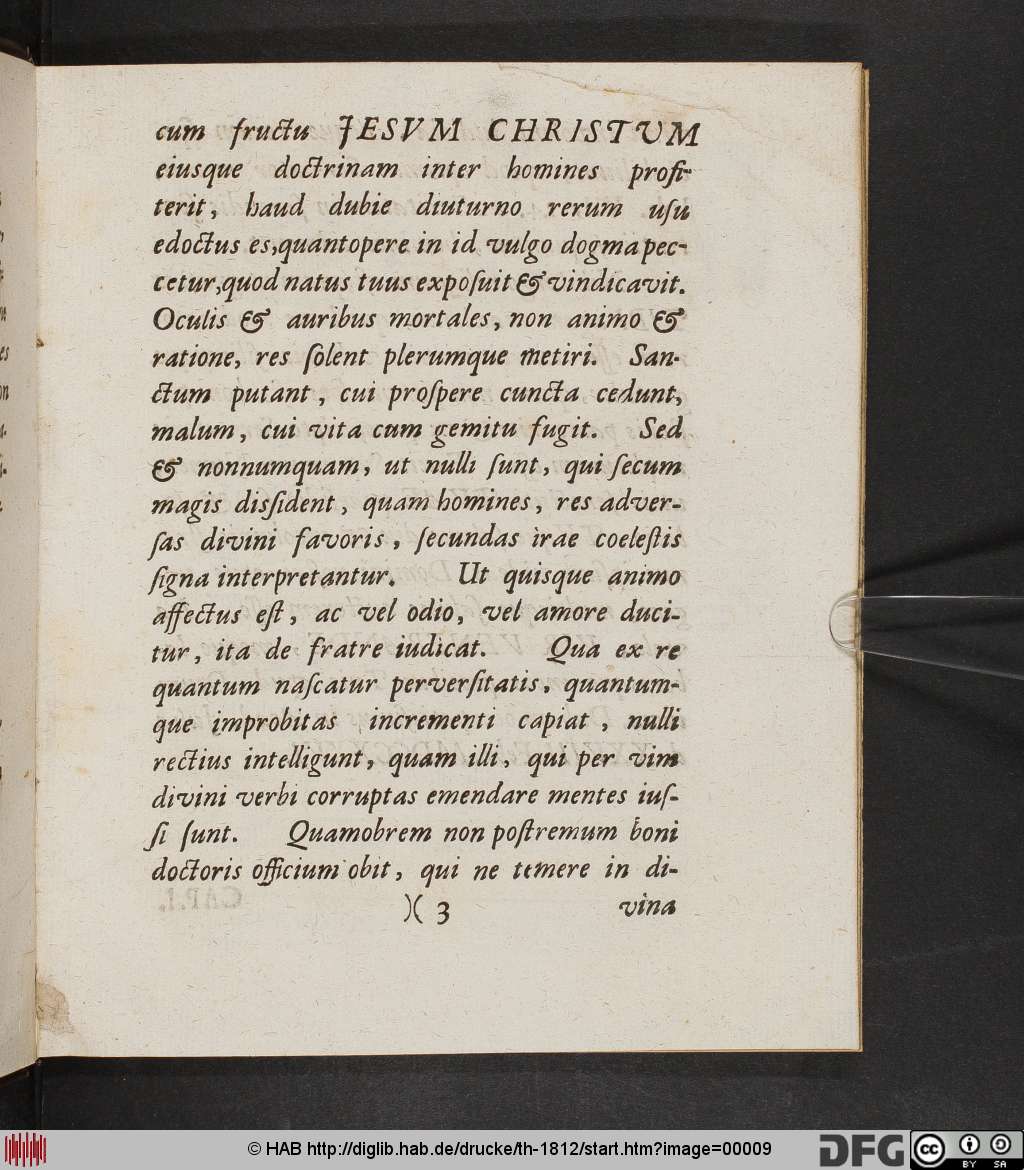 cum fructu JESVM CHRISTVM
eiusque doctrinam inter homines profi-
terit, haud dubie diuturno rerum uſu
edoctus es, quantopere in id vulgo dogma pec-
cetur, quod natus tuus expoſuit & vindicavit.
Oculis & auribus mortales, non animo &
ratione, res ſolent plerumque metiri. San-
ctum putant, cui proſpere cuncta cedunt,
malum, cui vita cum gemitu fugit. Sed
& nonnumquam, ut nulli ſunt, qui ſecum
magis disſident, quam homines, res adver-
ſas divini favoris, ſecundas irae coeleſtis
ſigna interpretantur. Ut quisque animo
affectus eſt, ac vel odio, vel amore duci-
tur, ita de fratre iudicat. Qua ex re
quantum naſcatur perverſitatis, quantum-
que improbitas incrementi capiat, nulli
rectius intelligunt, quam illi, qui per vim
divini verbi corruptas emendare mentes iuſ-
ſi ſunt. Quamobrem non poſtremum boni
doctoris officium obit, qui ne temere in di-
)( 3 vina
© HAB http://diglib.hab.de/drucke/th-1812/start.htm?image=00009
DFG cc BY SA